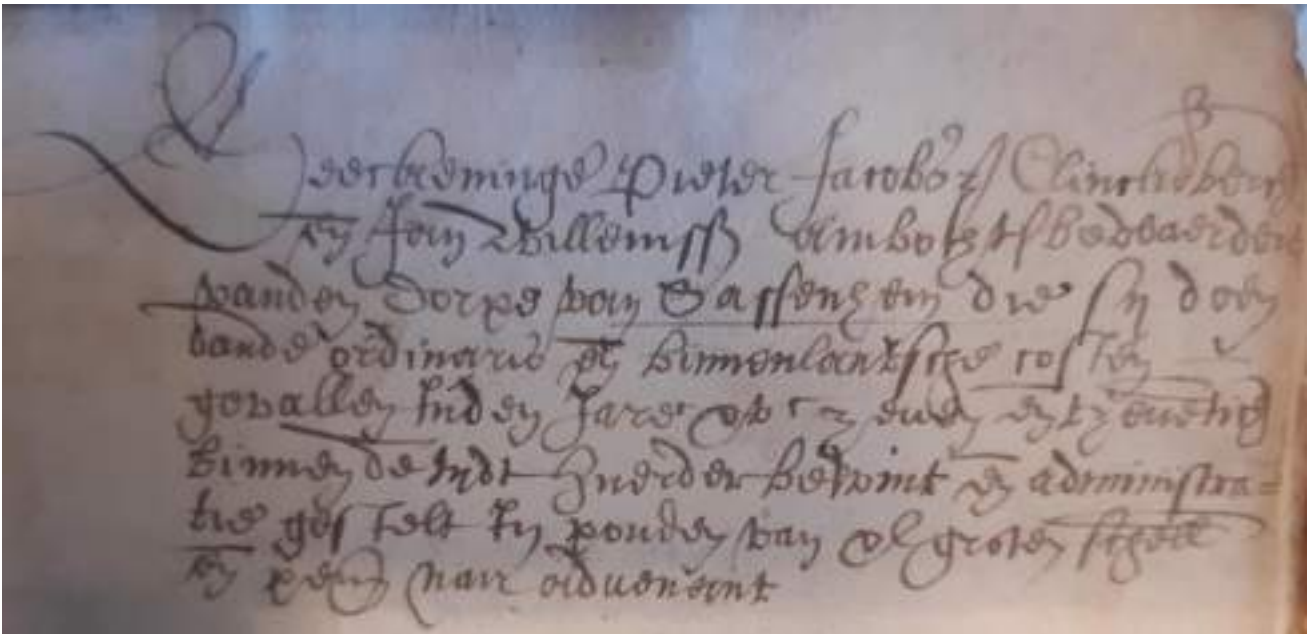 Reeckeninge Pieter Jacobsz Clinckeberg
en Jan Willemssz ambotsbewaerders
vanden dorpe van Sassenhem die sij doen
vande ordinaris en binnenlantsche costen
gevallen inden Jare xvc zeven entzeventig
binnen de tydt huerder bewint en administra=
tie gestelt in ponden van xl groten schell
en penn naer advenant